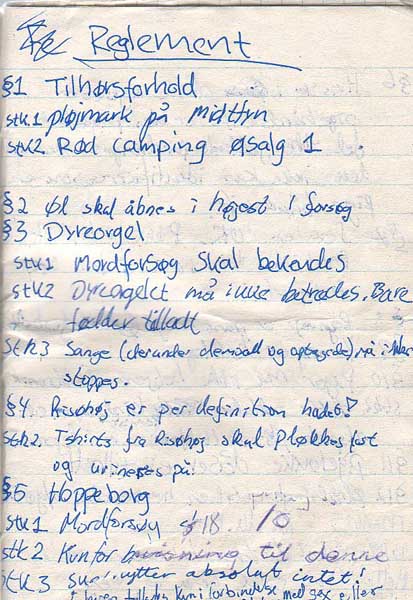 Reglement
§1 Tilhørsforhold
stk.1 pløjmark på Midtfyn
stk2 Rød camping &salg 1.
§2 Øl skal åbnes i højest 1 forsøg
§3 Dyreorgel
stk1 Mordforsøg skal bekendes
stk2 Dyreorgelet må ikke betrædes. Bare
fødder tilladt
stk.3 Sange (derunder and) må ikke
stoppes.
§4. Risøhøj er per definition hadet!
stk2. Tshirts fra Risøhøj skal pløkkes fast
og urineres på!
§5 Hoppeborg
stk1 Mordforsøg §18. 10
stk2. Kun for til denne
stk.3 absolut intet!
tilladt kun i forbindelse med sex eller